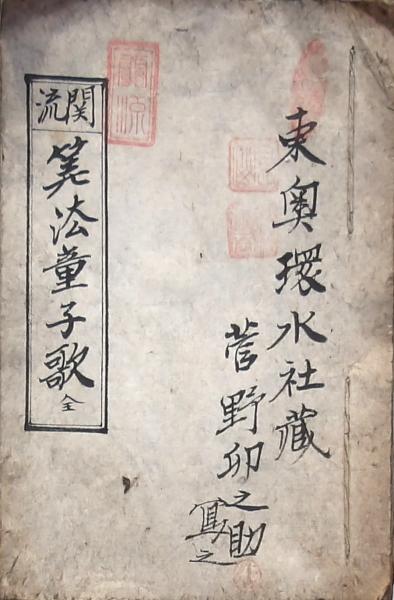 東奥環水社蔵
菅野卯之助
写之
関流
筭法童子歌 全